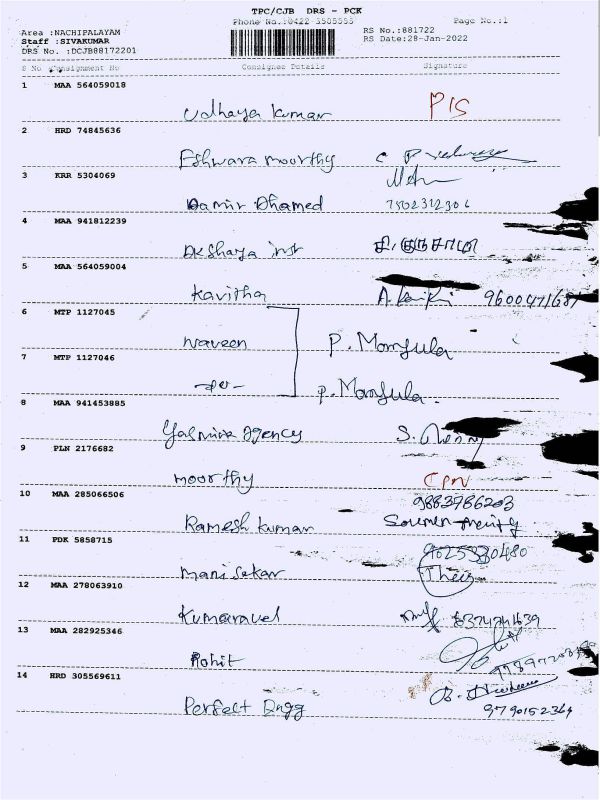 TPC/CJB DRS - PCK
Phone No.:0422-3505555 Page No.:1
Area :NACHIPALAYAM
Staff :SIVAKUMAR
DRS No. :DCJB88172201
RS No.:881722
RS Date:28-Jan-2022
S No Consignment No Consignee Details Signature
1 MAA 564059018
Udhaya kumar PIS
2 HRD 74845636
Eshwara moorthy
3 KRR 5304069
Damir Dhamed 7502312306
4 MAA 941812239
Akshaya inst
5 MAA 564059004
Kavitha 9600471687
6 MTP 1127045
Naveen P. Manjula
7 MTP 1127046
-do- P. Manjula.
8 MAA 941453885
Yasmink Agency S.
9 PLN 2176682
Moorthy CPN
10 MAA 285066506 9883986203
Ramesh kumar Soumen
11 PDK 5858715 9025330480
Manisekar
12 MAA 278063910
Kumaravel
13 MAA 282925346
Rohit
14 HRD 305569611
Perfect Engg 9790152364